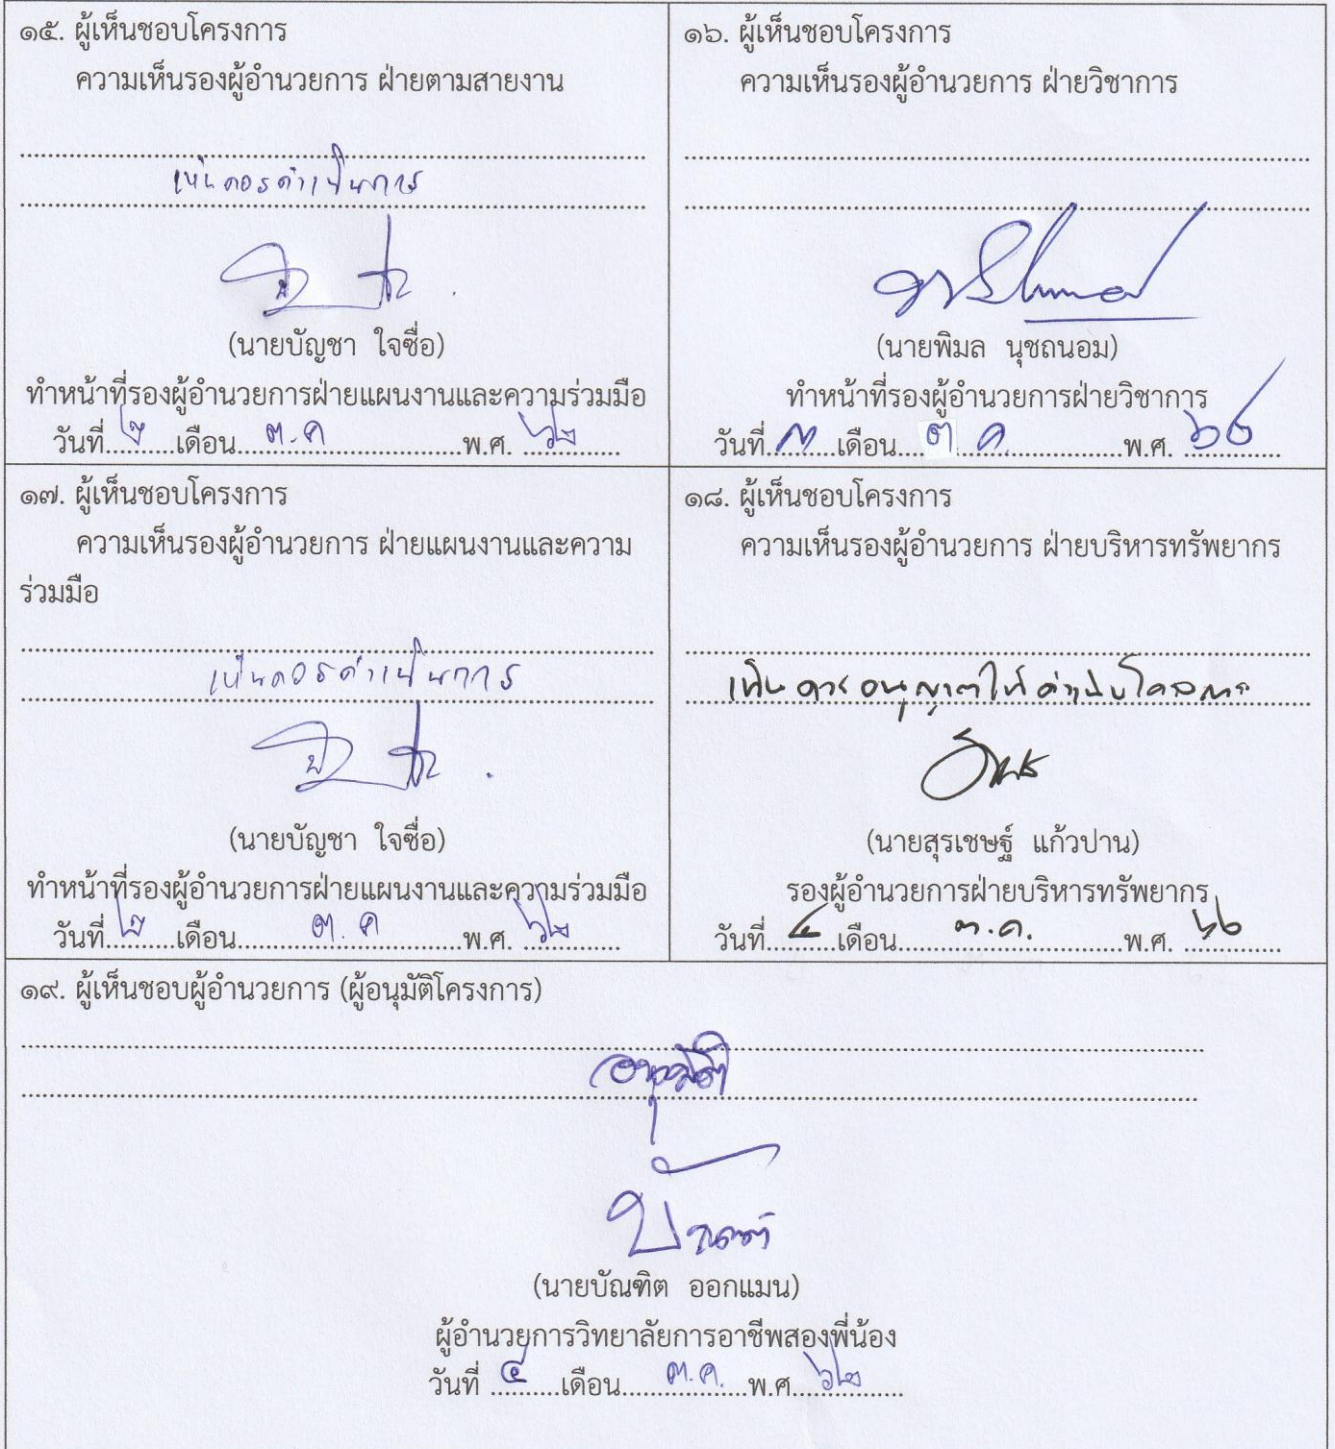 ๑๕. ผู้เห็นชอบโครงการ
ความเห็นรองผู้อำนวยการ ฝ่ายตามสายงาน
เห็นควรดำเนินการ
(นายบัญชา ใจซื่อ)
ทำหน้าที่รองผู้อำนวยการฝ่ายแผนงานและความร่วมมือ
วันที่ ๒ เดือน ต.ค พ.ศ. ๖๒
๑๖. ผู้เห็นชอบโครงการ
ความเห็นรองผู้อำนวยการ ฝ่ายวิชาการ
(นายพิมล นุชถนอม)
ทำหน้าที่รองผู้อำนวยการฝ่ายวิชาการ
วันที่ ๓ เดือน ต ค. พ.ศ. ๖๒
๑๗. ผู้เห็นชอบโครงการ
ความเห็นรองผู้อำนวยการ ฝ่ายแผนงานและความ
ร่วมมือ
เห็นควรดำเนินการ
(นายบัญชา ใจซื่อ)
ทำหน้าที่รองผู้อำนวยการฝ่ายแผนงานและความร่วมมือ
วันที่ ๒ เดือน ต.ค พ.ศ. ๖๒
๑๘. ผู้เห็นชอบโครงการ
ความเห็นรองผู้อำนวยการ ฝ่ายบริหารทรัพยากร
เห็นควรอนุญาตให้
(นายสุรเชษฐ์ แก้วปาน)
รองผู้อำนวยการฝ่ายบริหารทรัพยากร
วันที่ ๔ เดือน ต.ค. พ.ศ. ๖๒
๑๙. ผู้เห็นชอบผู้อำนวยการ (ผู้อนุมัติโครงการ)
อนุมัติ
บัณฑิต
(นายบัณฑิต ออกแมน)
ผู้อำนวยการวิทยาลัยการอาชีพสองพี่น้อง
วันที่ ๔ เดือน ต.ค. พ.ศ. ๖๒